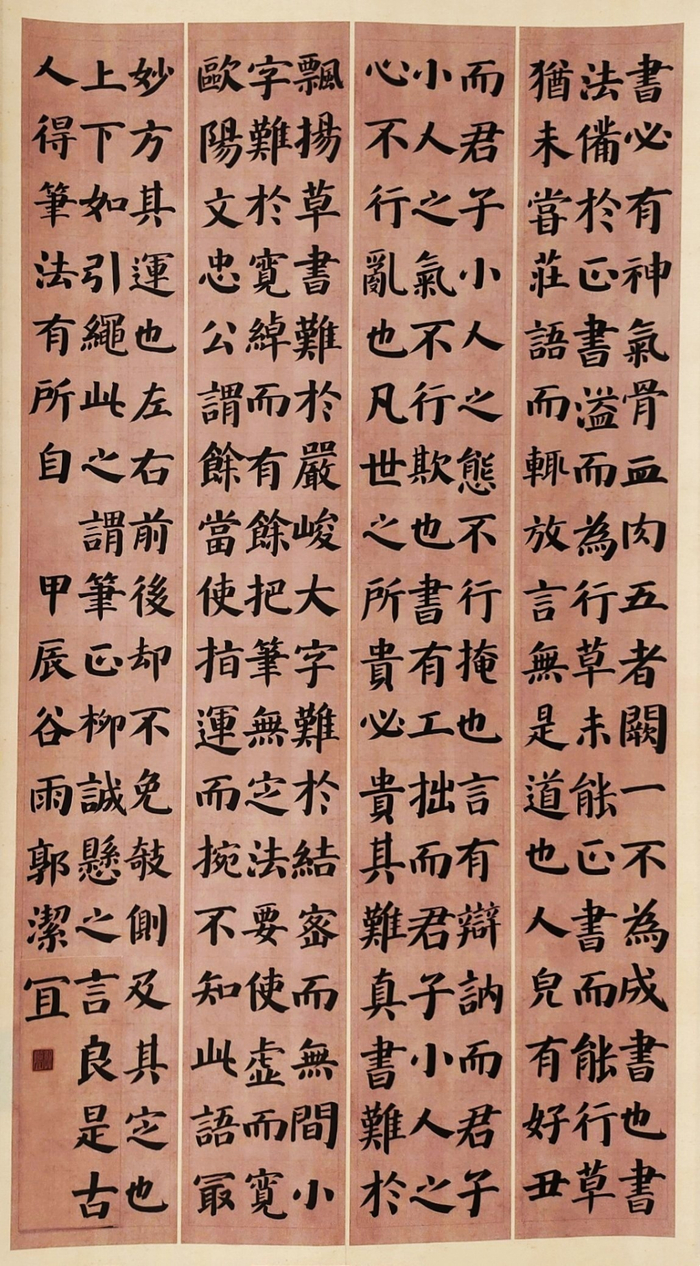 書必有神氣骨血肉五者闕一不為成書也書
法備於正書溢而為行草未能正書而能行草
猶未嘗莊語而輒放言無是道也人皃有好丑
而君子小人之態不行掩也言有辯訥而君子
小人之氣不行欺也書有工拙而君子小人之
心不行亂也凡世之所貴必貴其難真書難於
飄揚草書難於嚴峻大字難於結密而無間小
字難於寬綽而有餘把筆無定法要使虛而寬
歐陽文忠公謂餘當使指運而捥不知此語冣
妙方其運也左右前後却不免攲側及其定也
上下如引繩此之謂筆正柳誠懸之言良是古
人得筆法有所自 甲辰谷雨郭潔冝